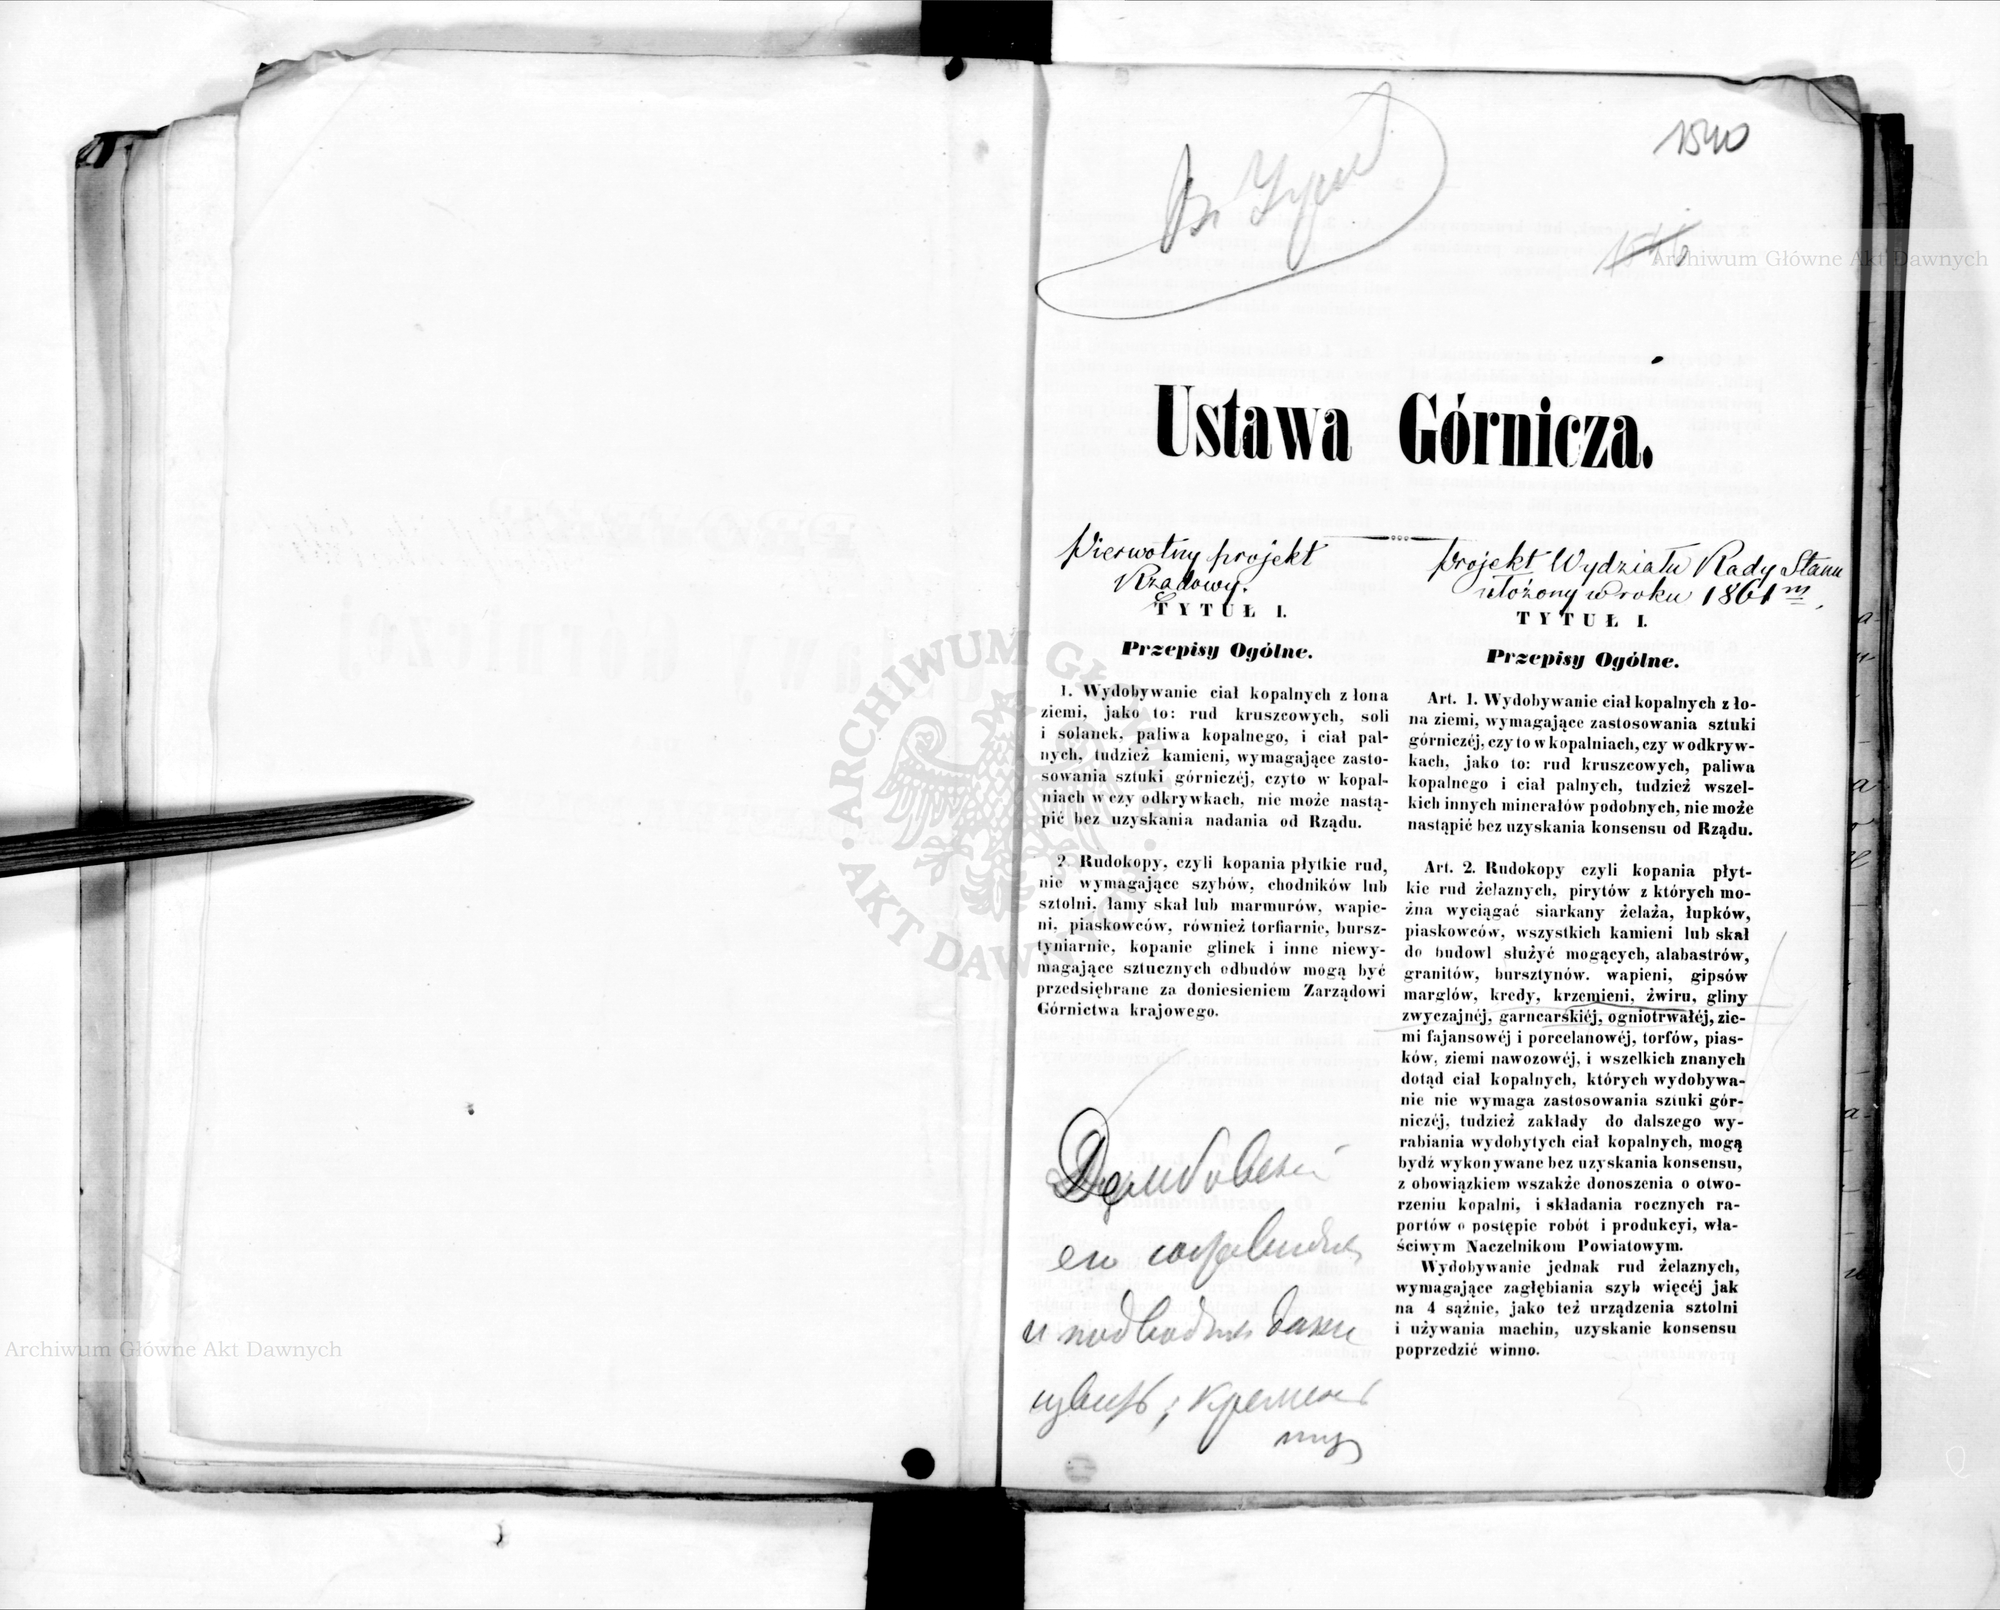 1540
Archiwum Główne Akt Dawnych
Ustawa Górnicza.
Pierwotny projekt
Rządowy.
TYTUŁ I.
Przepisy Ogólne.
1. Wydobywanie ciał kopalnych z łona
ziemi, jako to: rud kruszcowych, soli
i solanek, paliwa kopalnego, i ciał pal-
nych, tudzież kamieni, wymagające zasto-
sowania sztuki górniczéj, czyto w kopal-
niach w czy odkrywkach, nie może nastą-
pić bez uzyskania nadania od Rządu.
2. Rudokopy, czyli kopania płytkie rud,
nie wymagające szybów, chodników lub
sztolni, łamy skał lub marmurów, wapie-
ni, piaskowców, również torfiarnie, bursz-
tyniarnie, kopanie glinek i inne niewy-
magające sztucznych odbudów mogą być
przedsiębrane za doniesieniem Zarządowi
Górnictwa krajowego.
Projekt Wydziału Rady Stanu
ułożony w roku 1861 m
TYTUŁ I.
Przepisy Ogólne.
Art. 1. Wydobywanie ciał kopalnych z ło-
na ziemi, wymagające zastosowania sztuki
górniczéj, czy to w kopalniach, czy w odkryw-
kach, jako to: rud kruszcowych, paliwa
kopalnego i ciał palnych, tudzież wszel-
kich innych minerałów podobnych, nie może
nastąpić bez uzyskania konsensu od Rządu.
Art. 2. Rudokopy czyli kopania płyt-
kie rud żelaznych, pirytów z których mo-
żna wyciągać siarkany żelaża, łupków,
piaskowców, wszystkich kamieni lub skał
do budowl służyć mogących, alabastrów,
granitów, bursztynów. wapieni, gipsów
marglów, kredy, krzemieni, żwiru, gliny
zwyczajnéj, garncarskiéj, ogniotrwałéj, zie-
mi fajansowéj i porcelanowéj, torfów, pias-
ków, ziemi nawozowéj, i wszelkich znanych
dotąd ciał kopalnych, których wydobywa-
nie nie wymaga zastosowania sztuki gór-
niczéj, tudzież zakłady do dalszego wy-
rabiania wydobytych ciał kopalnych, mogą
bydź wykonywane bez uzyskania konsensu,
z obowiązkiem wszakże donoszenia o otwo-
rzeniu kopalni, i składania rocznych ra-
portów o postępie robót i produkcyi, wła-
ściwym Naczelnikom Powiatowym.
Wydobywanie jednak rud żelaznych,
wymagające zagłębiania szyb więcéj jak
na 4 sążnie, jako też urządzenia sztolni
i używania machin, uzyskanie konsensu
poprzedzić winno.
ARCHIWUM GŁÓWNE AKT DAWNYCH
Archiwum Główne Akt Dawnych